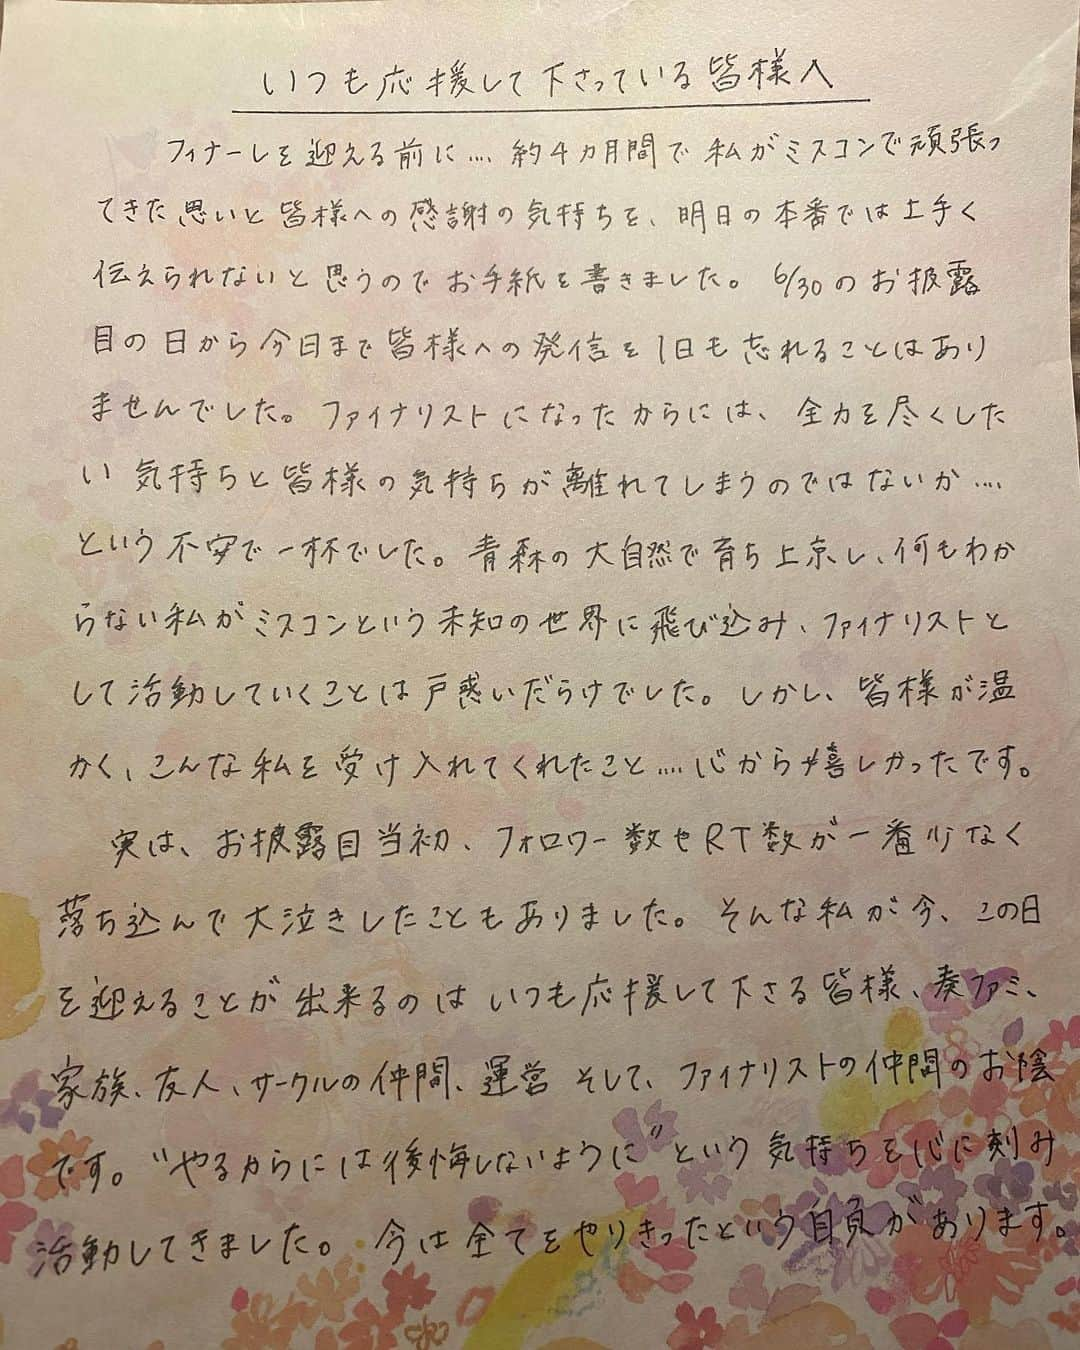 いつも応援して下さっている皆様へ
フィナーレを迎える前に…. 約4カ月間で私がミスコンで頑張っ
てきた思いと皆様への感謝の気持ちを、明日の本番では上手く
伝えられないと思うのでお手紙を書きました。6/30のお披露
目の日から今日まで皆様への発信を1日も忘れることはあり
ませんでした。ファイナリストになったからには、全力を尽くした
い気持ちと皆様の気持ちが離れてしまうのではないか….
という不安で一杯でした。青森の大自然で育ち上京し、何もわか
らない私がミスコンという未知の世界に飛び込み、ファイナリストと
して活動していくことは戸惑いだらけでした。しかし、皆様が温
かく、こんな私を受け入れてくれたこと….心から嬉しかったです。
実は、お披露目当初、フォロワー数やRT数が一番少なく
落ち込んで大泣きしたこともありました。そんな私が今、この日
を迎えることが出来るのはいつも応援して下さる皆様、奏ファミ、
家族、友人、サークルの仲間、運営そして、ファイナリストの仲間のお陰
です。"やるからには後悔しないように"という気持ちを心に刻み
活動してきました。今は全てをやりきったという自負があります。